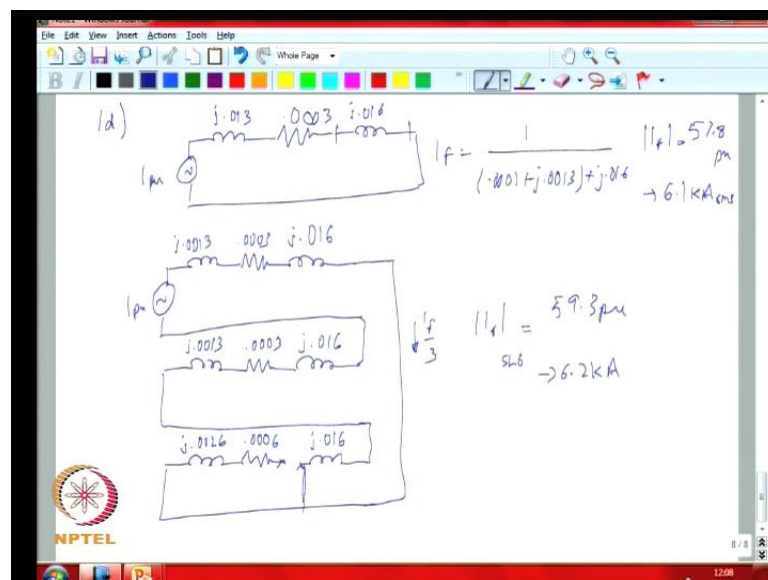 Note1 - Windows Journal
File Edit View Insert Actions Tools Help
Whole Page
B I
1d)
j.013 .0003 j.016
1 pu
If = 1 / (.0001 + j.0013) + j.016
|If| = 57.8 pu
→ 6.1 kA rms
j.0013 .0003 j.016
1 pu
j.0013 .0003 j.016
If/3
|If| SLG = 59.3 pu
→ 6.2 kA
j.0026 .0006 j.016
NPTEL
8 / 8
12:08